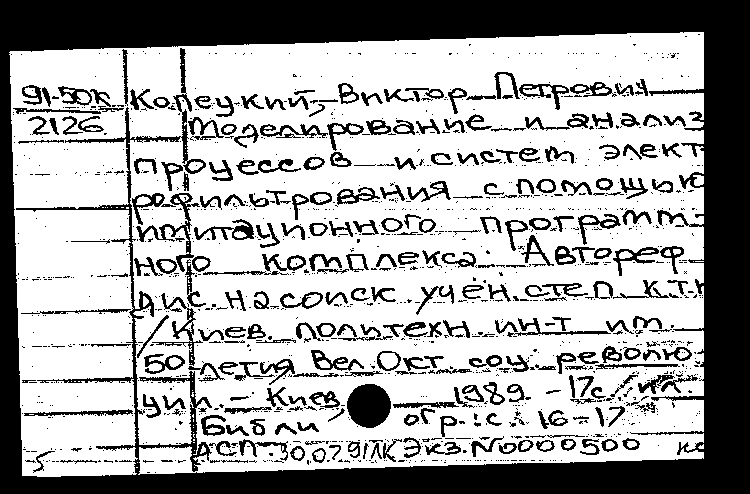 91-50к Копецкий, Виктор Петрович
2126 Моделирование и анализ
процессов и систем элект-
рофильтрования с помощью
имитационного программ-
ного комплекса: Автореф
дис. на соиск. учён. степ. к.т.н
/Киев. политехн. ин-т им.
50-летия Вел. Окт. соц. револю-
ции. - Киев 1989. - 17с./ил.
Библи огр.: с. 16-17
АСП. 30.07.91ЛК Экз. N0000500
5